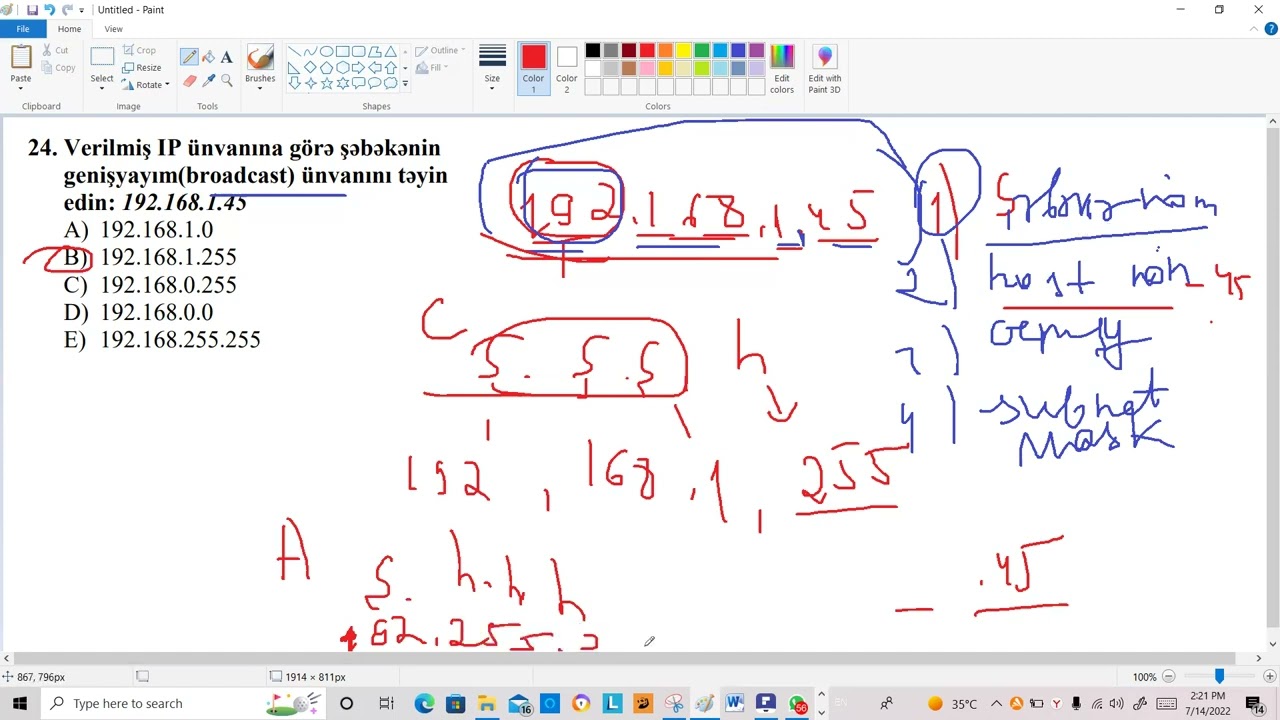 Untitled - Paint
File
Home
View
Paste
Cut
Copy
Clipboard
Select
Crop
Resize
Rotate
Image
A
Tools
Brushes
Outline
Fill
Shapes
Size
Color 1
Color 2
Edit colors
Colors
Edit with Paint 3D
24. Verilmiş IP ünvanına görə şəbəkənin
genişyayım(broadcast) ünvanını təyin
edin: 192.168.1.45
A) 192.168.1.0
B) 192.168.1.255
C) 192.168.0.255
D) 192.168.0.0
E) 192.168.255.255
192.168.1.45
1)
2) host nöm - 45
4) subnet
mask
C
Ş. Ş. Ş h
192.168.1.255
A
Ş. h. h. h
.45
867, 796px
1914 × 811px
100%
Type here to search
16
56
EN
35°C
2:21 PM
7/14/2022
14